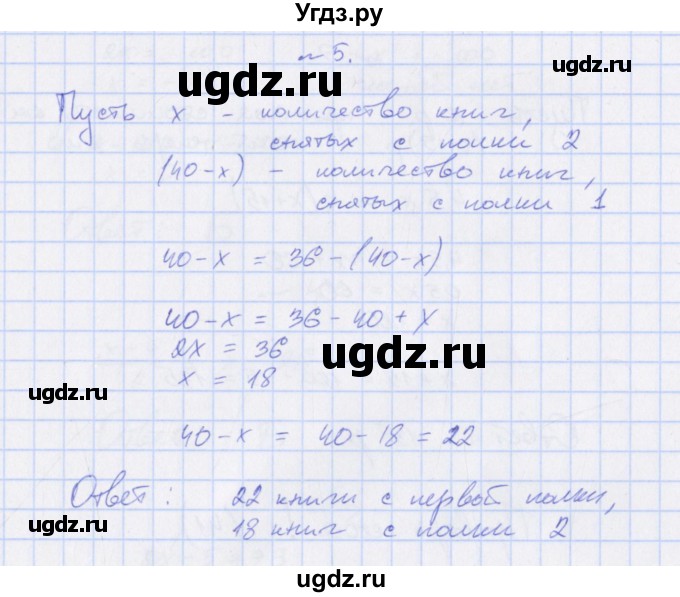 Угдз.ру
№ 5.
ugdz.ru ugdz.ru
Пусть x – количество книг,
снятых с полки 2
(40-x) – количество книг,
снятых с полки 1
ugdz.ru
40-x = 36-(40-x)
40-x = 36-40+x
2x = 36
ugdz.ru
x = 18
ugdz.ru
ugdz.ru
40-x = 40-18 = 22
Ответ: 22 книги с первой полки,
18 книг с полки 2
ugdz.ru
ugdz.ru
ugdz.ru